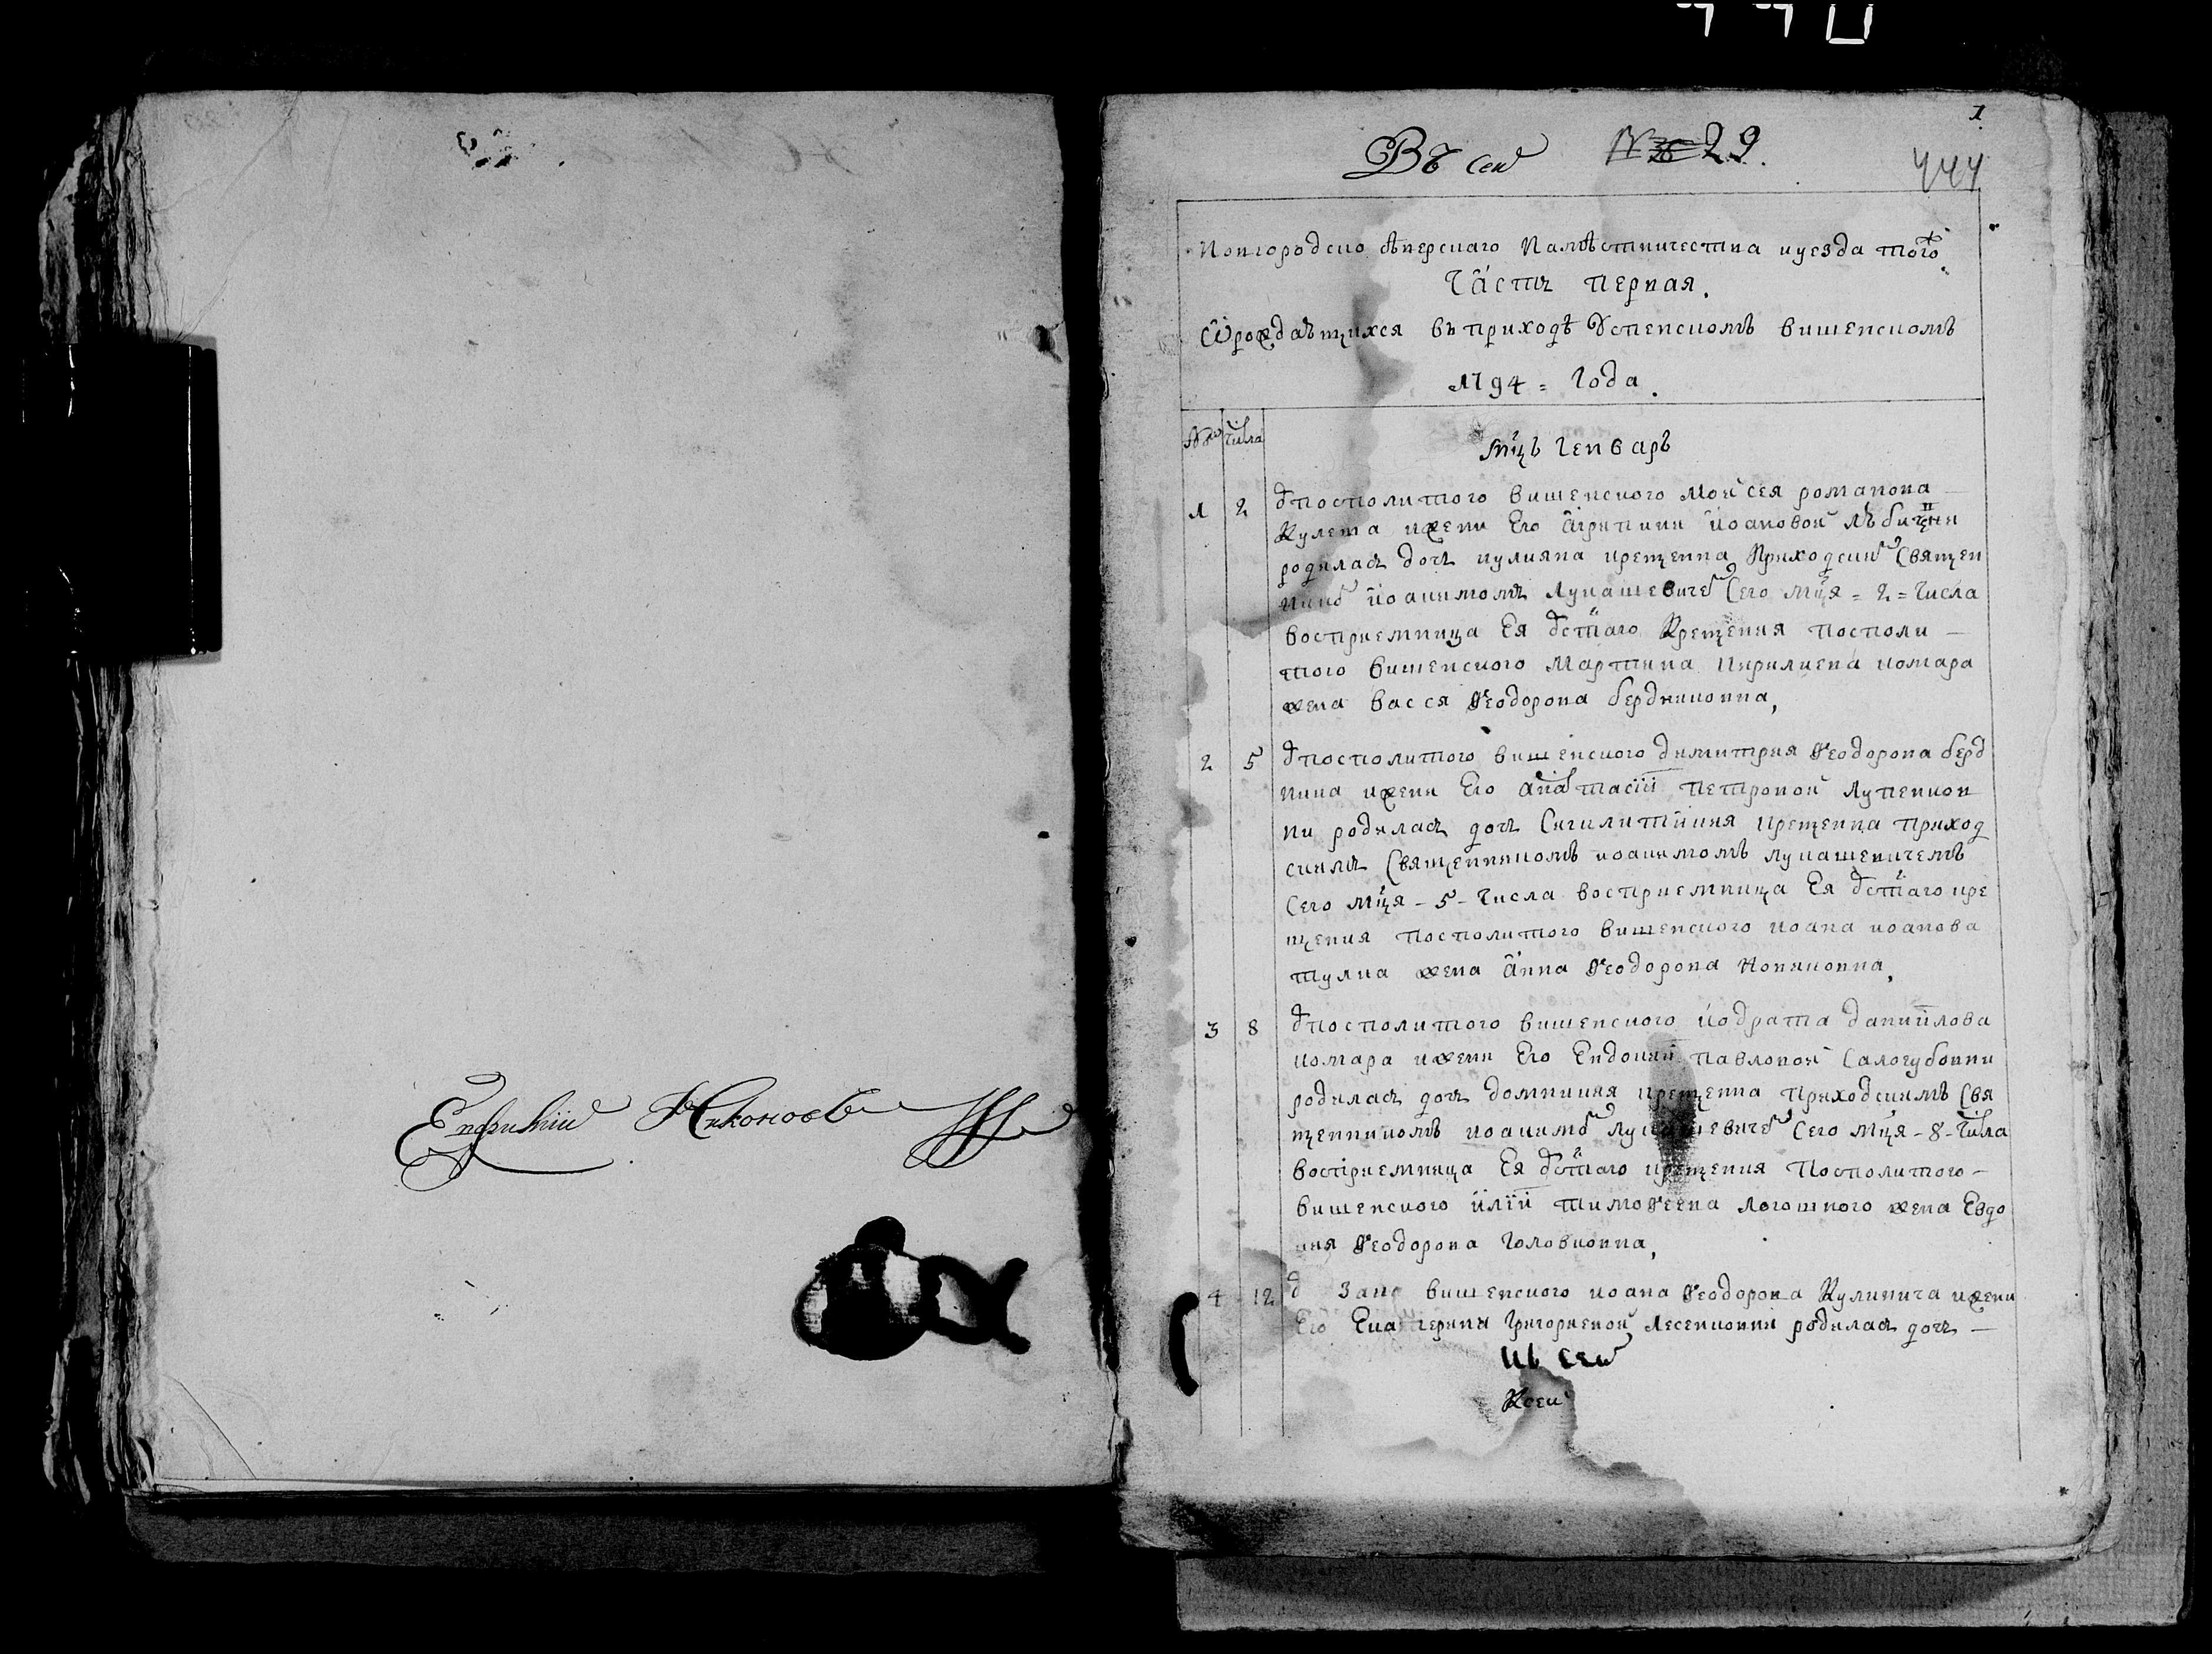 Евфимій Никоновъ
1
Въ сей № 29.
444
Новгородско сѣверскаго Намѣстничества иуезда тогож
Часть первая.
Ѡрождаѣщихся въ приходѣ Успенском вишенскомъ
1794 = Года.
№ числа
Мцъ Генваръ
1 2 ѿ посполитого вишенского Моисея романова
Кулета ижени Его Агрипини Иоановой
родилась дочъ иулияна крещенна Приходским Священ
ником Иоакимомъ Лукашевичем Сего мця = 2 = Числа
восприемница Ея ѿ стаго Крещения посполи-
того вишенского Мартина Кирилиева комара
жена Васся Ѳеодорова бердниковна,
2 5 ѿ посполитого вишенского димитрия Ѳеодорова берд
ника ижени Его Анастасіи Петровой Лупенков
ни родилась дочъ Сигклитикия крещенна приход
скимъ Священникомъ иоакимомъ лукашевичемъ
Сего мця - 5 - Числа восприемница Ея ѿ стаго кре
щения посполитого вишенского иоана иоанова
тулка жена Анна Ѳеодорова
3 8 ѿ посполитого вишенского кодрата даниилова
комара ижени Его Евдокии павловой Салогубовни
родилась дочъ домникия крещенна приходскимъ Свя
щенникомъ иоакимом Лукашевичем Сего мця - 8 - Числа
восприемница Ея ѿ стаго крещения Посполитого -
вишенского иліи тимоѲеева Логошного жена Евдо
кия Ѳеодорова Головковна,
4 12 ѿ вишенского иоана Ѳеодорова Кулинича ижени
Его Екатерини Григориевой Лесенковни родилась дочъ -
Ксен